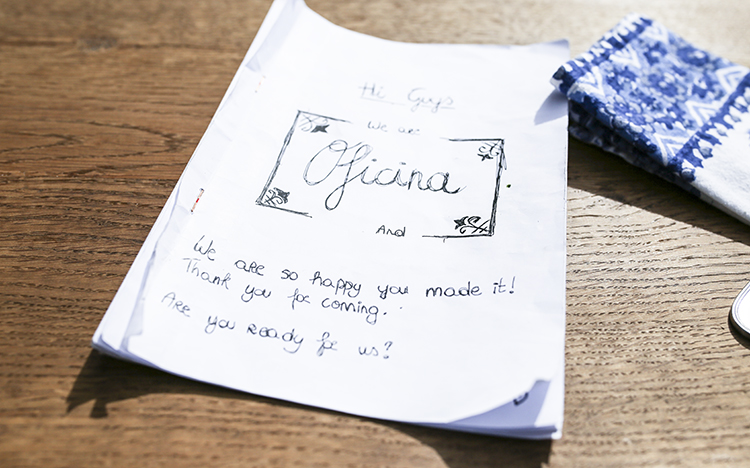 Hi Guys
We are
Oficina
And
We are so happy you made it!
Thank you for coming.
Are you ready for us?